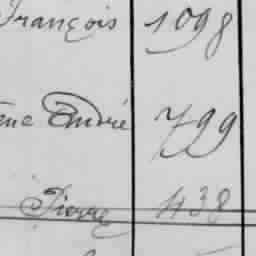 François 1098
André 799
Pierre 438